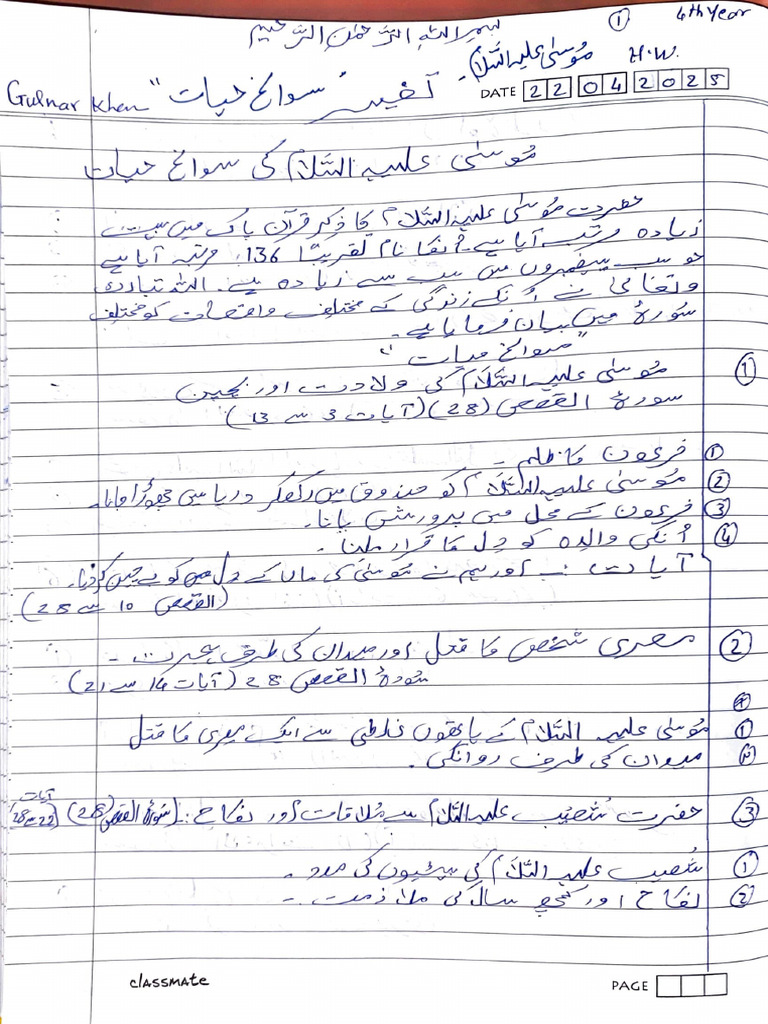 بسم اللہ الرّحمٰن الرّحیم
① 4th Year
مُوسٰی علیہ السَّلام H.W.
DATE 22 04 2025
Gulnar Khan "سوانح حیات"
مُوسٰی علیہ السَّلام کی سوانح حیات
حضرت مُوسٰی علیہ السَّلام کا ذکر قرآن پاک میں بہت
زیادہ مرتبہ آیا ہے۔ اُنکا نام تقریبًا 136 مرتبہ آیا ہے
جو سب پیغمبروں میں سب سے زیادہ ہے۔ اللہ تبارک
وتعالیٰ نے اُنکے زندگی کے مختلف واقعات کو مختلف
سُورۃ میں بیان فرمایا ہے۔
"سوانح حیات"
① مُوسٰی علیہ السَّلام کی ولادت اور بچپن
سورۃ القصص (28) (آیات 3 سے 13)
① فرعون کا ظلم۔
② مُوسٰی علیہ السَّلام کو صندوق میں رکھکر دریا میں چھوڑا جانا۔
③ فرعون کے محل میں پرورش پانا۔
④ اُنکی والدہ کو دِل کا قرار ملنا۔
آیات :۔ اور ہم نے مُوسٰی کی ماں کے دل کو بے چین کر دیا۔
(القصص 10 سے 28)
② مصری شخص کا قتل اور میدان کی طرف ہجرت ۔
سُورۃ القصص 28 (آیات 14 سے 21)
① مُوسٰی علیہ السَّلام کے ہاتھوں غلطی سے ایک مصری کا قتل
② میدان کی طرف روانگی۔
③ حضرت شُعَیب علیہ السَّلام سے مُلاقات اور نکاح :۔ (سُورۃ القصص (28)) (آیات 22 سے 28)
① شُعیب علیہ السَّلام کی بیٹیوں کی مدد ۔
② نکاح اور کچھ سال کی ملازمت ۔
classmate
PAGE